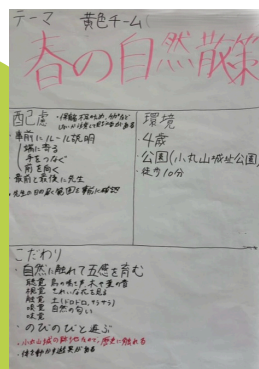 テーマ 黄色チーム
春の自然散策
配慮
事前にルール説明
端に寄る
手をつなぐ
前を向く
最前と最後に先生
先生の目の届く範囲を事前に確認
環境
4歳
・公園(小丸山城址公園)
・徒歩10分
こだわり
・自然に触れて五感を育む
聴覚 鳥の鳴き声 木や葉の音
視覚 きれいな花を見る
触覚 土(ドロドロ、サラサラ)
嗅覚 自然の匂い
味覚
・のびのびと遊ぶ